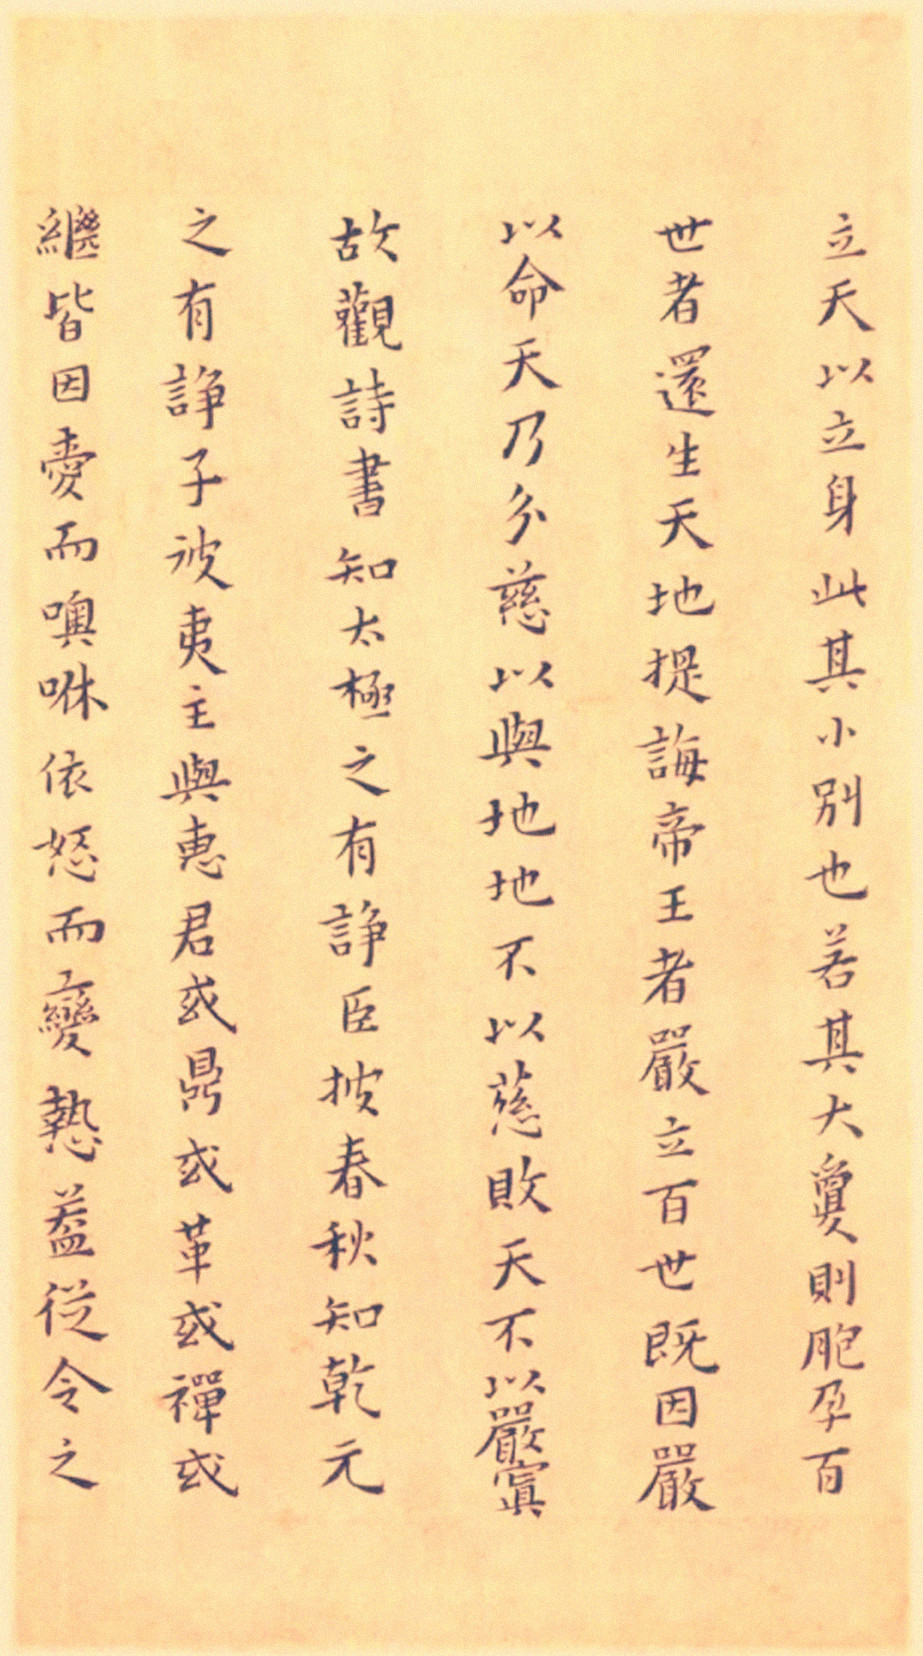 立天以立身此其小別也若其大奠則胞孕百
世者還生天地提誨帝王者嚴立百世既因嚴
以命天乃分慈以與地地不以慈敗天不以嚴寘
故觀詩書知太極之有諍臣披春秋知乾元
之有諍子彼夷主與惠君或鼎或革或禪或
繼皆因愛而噢咻依怒而變慹蓋從令之